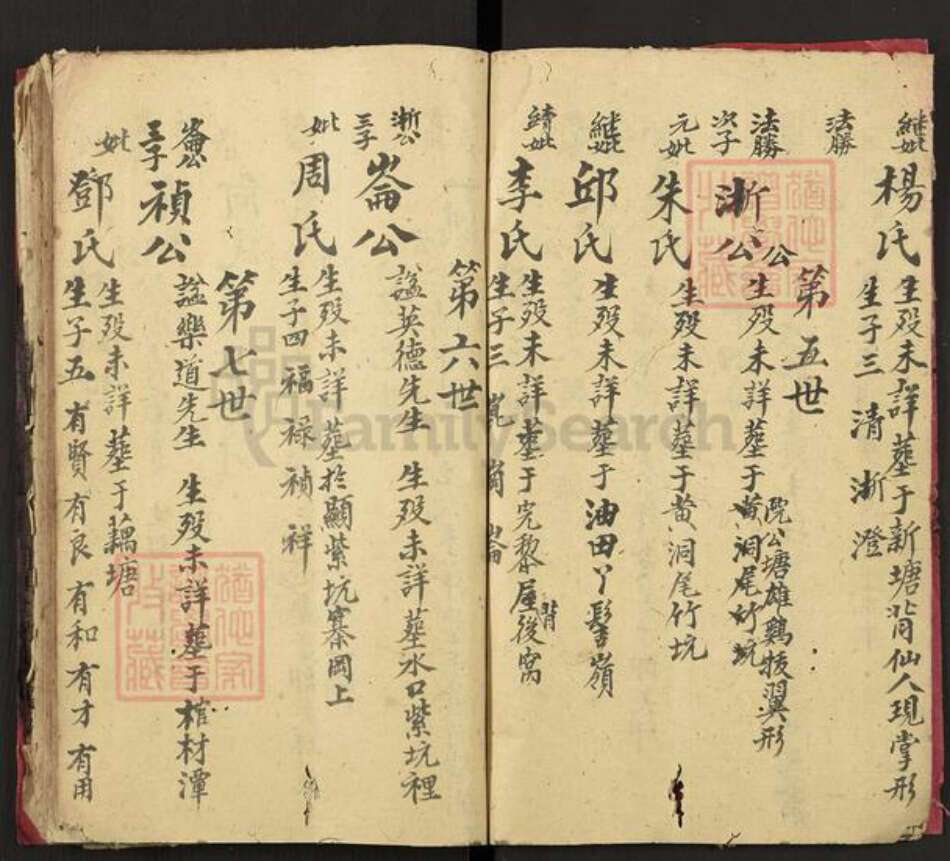 繼妣 楊氏 生歿未詳葬于新塘背仙人現掌形
生子三 清 淅 澄
法勝
第五世
法勝次子 淅公 生歿未詳葬于黄洞尾竹坑
公 院公塘雄鷄拔翼形
元妣 朱氏 生歿未詳葬于黄洞尾竹坑
繼妣 邱氏 生歿未詳葬于油田丫髻嶺
續妣 李氏 生歿未詳葬于完黎屋背後窩
生子三 崑 崗 崙
第六世
淅公三子 崙公 諡英德先生 生歿未詳墓水口紫坑裡
妣 周氏 生歿未詳葬於顯紫坑寨岡上
生子四 福 禄 禎 祥
第七世
崙公三子 禎公 諡樂道先生 生歿未詳葬于棺材潭
妣 鄧氏 生歿未詳葬于藕塘
生子五 有賢 有良 有和 有才 有用
FamilySearch